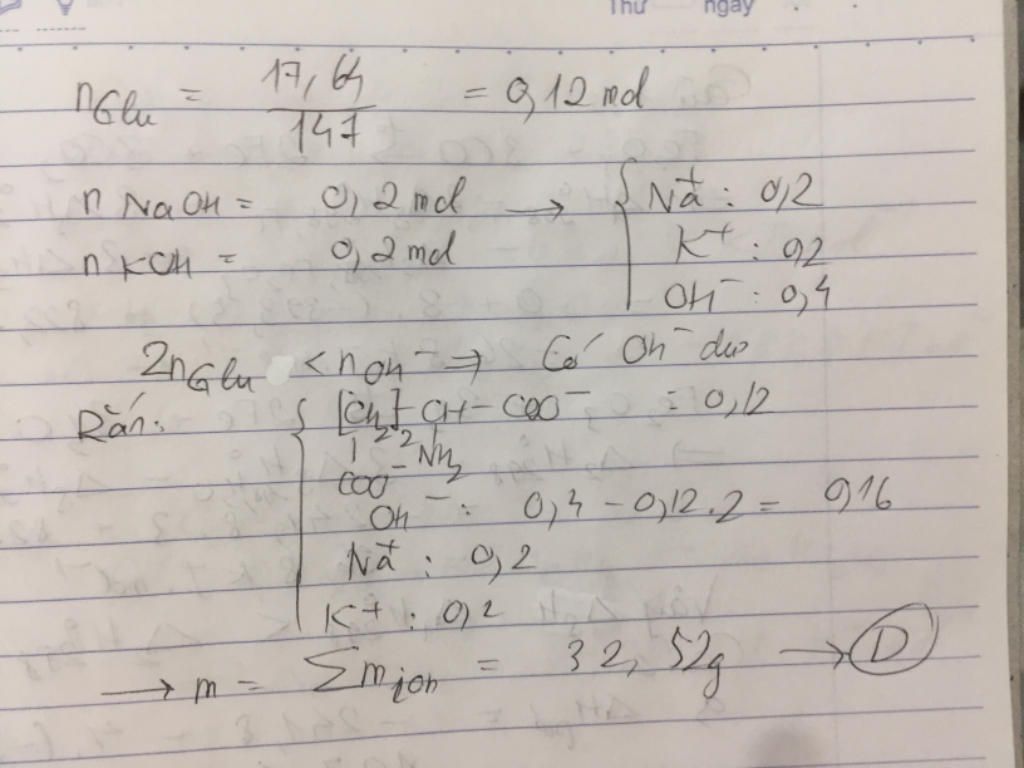 Thứ ngày
nGlu = 17,64 / 147 = 0,12 mol
n NaOH = 0,2 mol → { Na+ : 0,2
n KOH = 0,2 mol K+ : 0,2
OH- : 0,4
2nGlu < nOH- ⇒ Có OH- dư
Rắn: { [CH2]2-CH-COO- = 0,12
COO- NH2
OH- : 0,4 - 0,12.2 = 0,16
Na+ : 0,2
K+ : 0,2
→ m = ∑mion = 32,52g → D